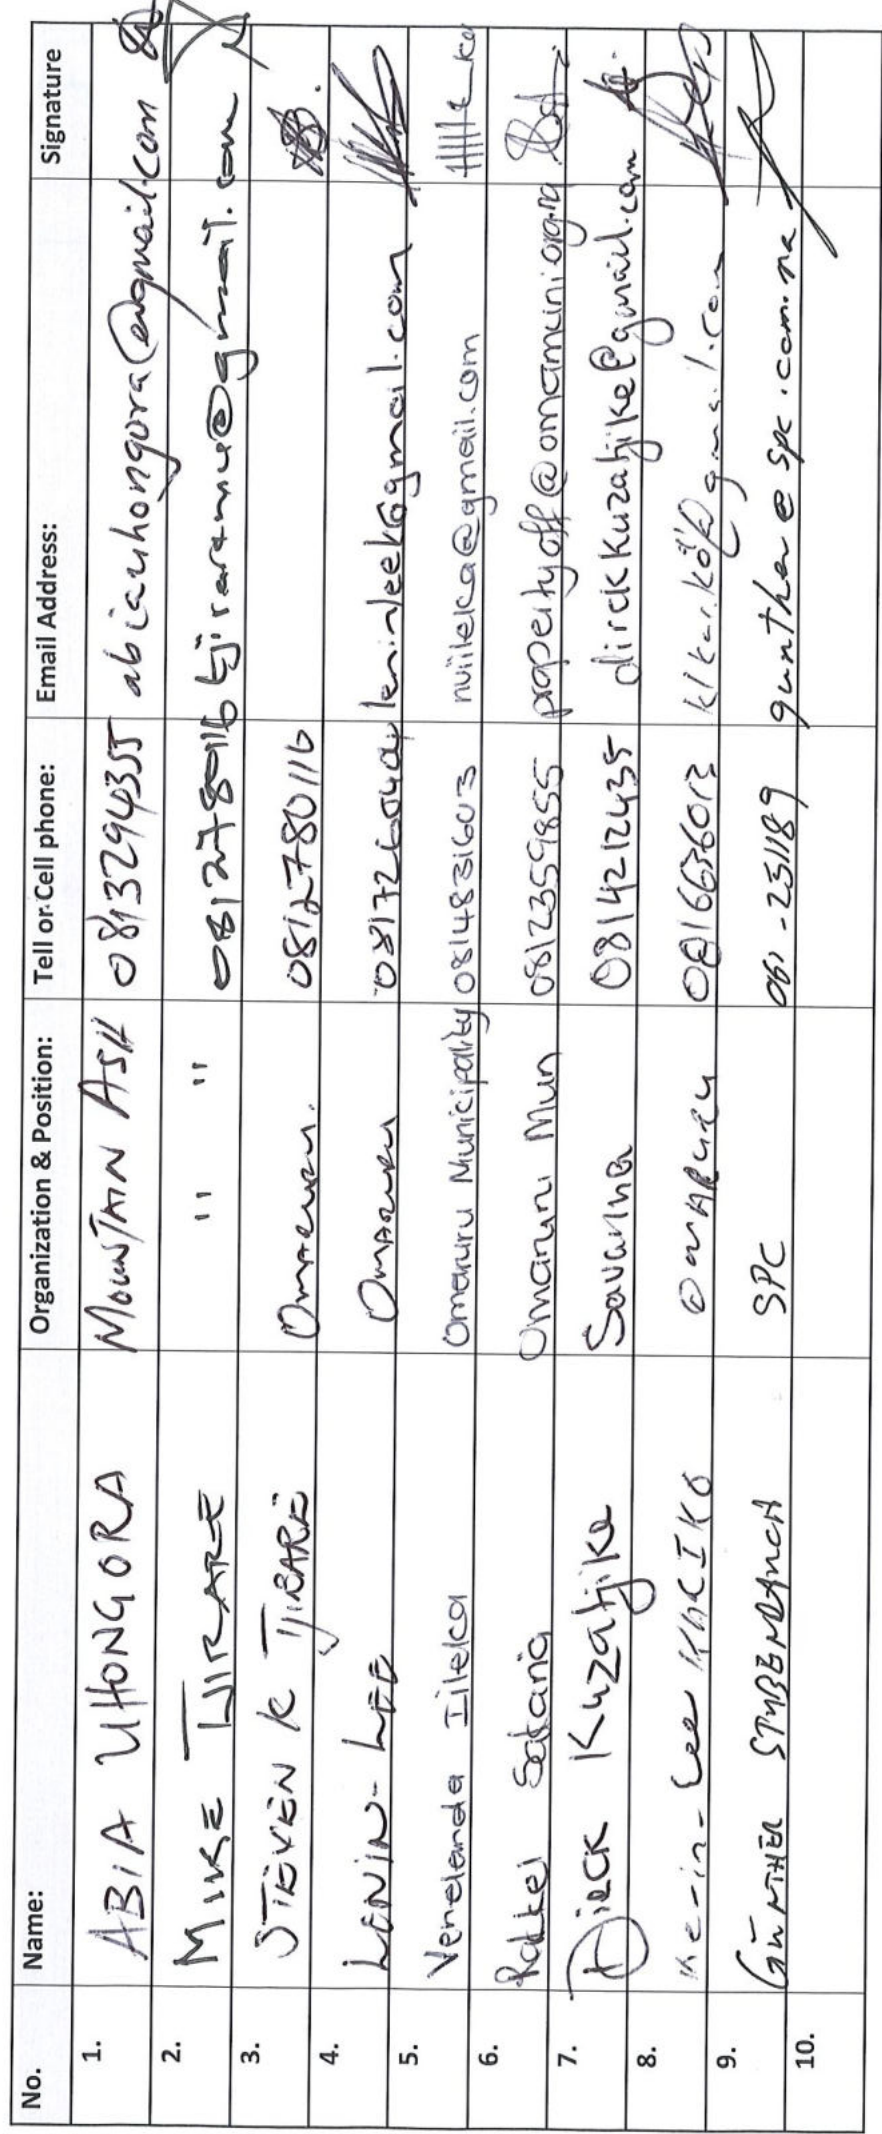 No. Name: Organization & Position: Tell or Cell phone: Email Address: Signature
1. ABIA UHONGORA MOUNTAIN ASH 0813294355 abiauhongora@gmail.com
2. MIKE TJIRARE " " 0812780116 tjiraremu@gmail.com
3. STEVEN K TJIRARE OMARURU. 0812780116
4. LENIN-LEE OMARURU leninleek@gmail.com
5. Venelanda Iileka Omaruru Municipality 0814831603 nviileka@gmail.com
6. Omaruru Mun 0812359855 propertyoff@omamuni.org.na
7. Dirck Kuzatjike Savanna 0814212435 dirckkuzatjike@gmail.com
8. OMARURU 0816636013
9. GÜNTHER SPC 061-231189 gunther@spc.com.na
10.